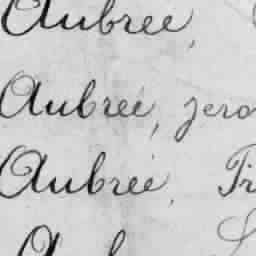 Aubrée,
Aubrée, Jero
Aubrée, Fr